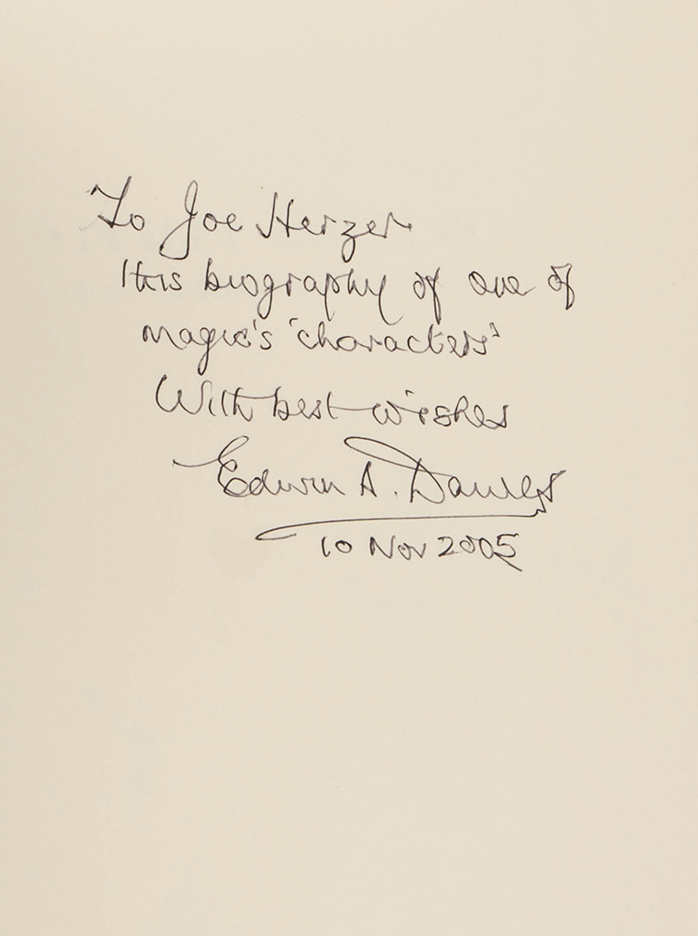 To Joe Herzer
this biography of one of
magic's 'characters'
With best wishes
Edwin A. Dawes
10 Nov 2005